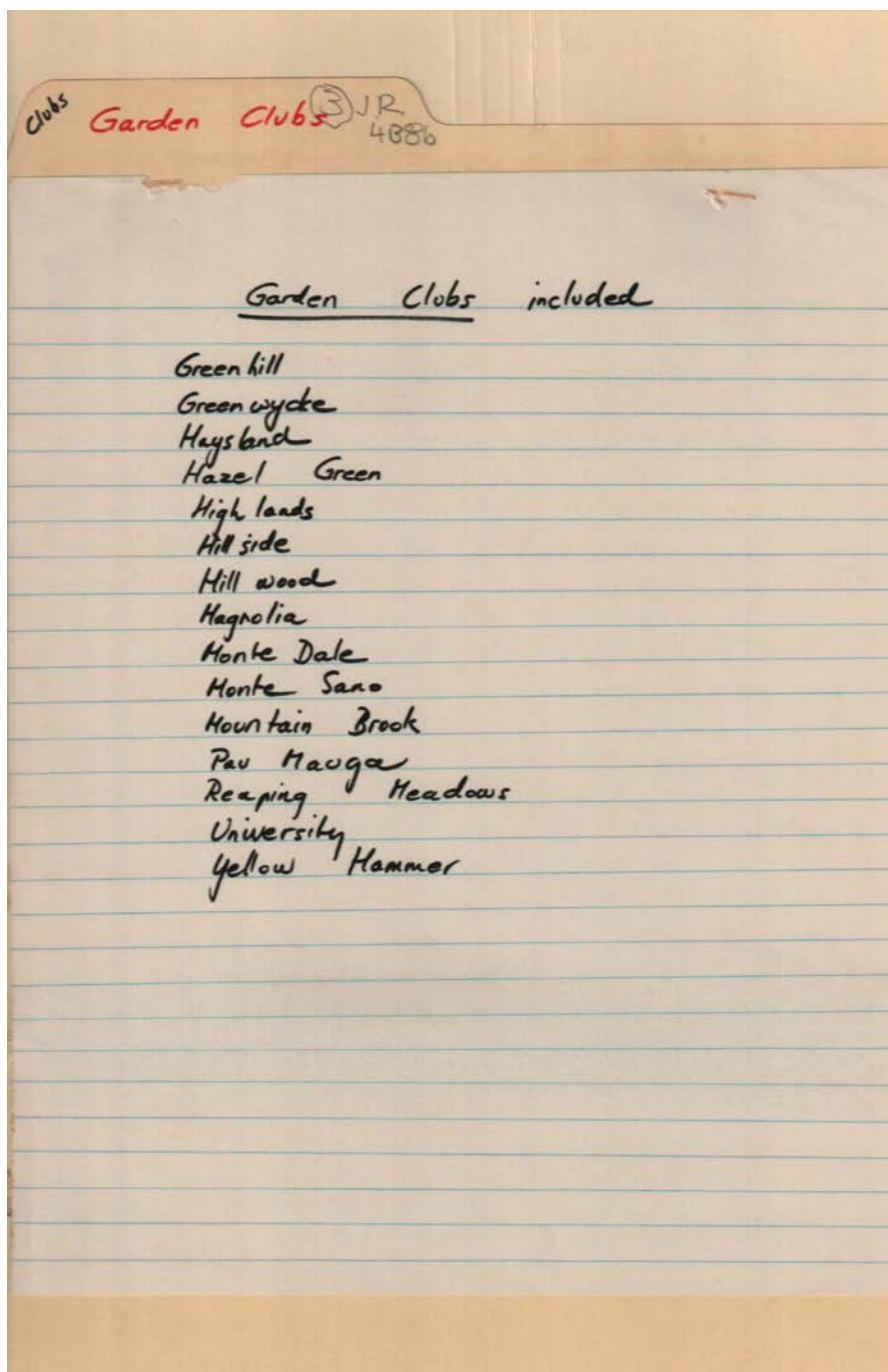 Clubs Garden Clubs 3 J.R.
4B8b
Garden Clubs included
Greenhill
Greenwycke
Haysland
Hazel Green
Highlands
Hillside
Hillwood
Magnolia
Monte Dale
Monte Sano
Mountain Brook
Pau Mauga
Reaping Meadows
University
Yellow Hammer